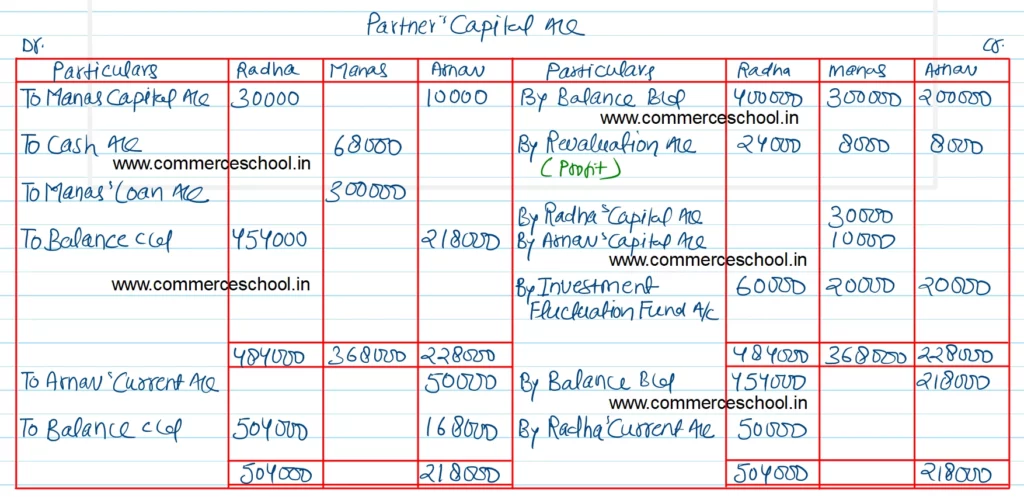 Partner's Capital A/c
Dr. Cr.
Particulars Radha Manas Arnav Particulars Radha Manas Arnav
To Manas Capital A/c 30000 10000 By Balance B/d 400000 300000 200000
www.commerceschool.in
To Cash A/c 68000 By Revaluation A/c 24000 8000 8000
www.commerceschool.in (Profit)
To Manas' Loan A/c 300000
By Radha's Capital A/c 30000
To Balance c/d 454000 218000 By Arnav's Capital A/c 10000
www.commerceschool.in
www.commerceschool.in By Investment 60000 20000 20000
Fluctuation Fund A/c
484000 368000 228000 484000 368000 228000
To Arnav's Current A/c 50000 By Balance B/d 454000 218000
www.commerceschool.in
To Balance c/d 504000 168000 By Radha's Current A/c 50000
504000 218000 504000 218000